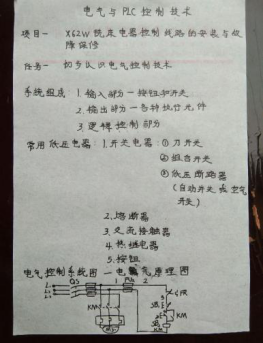 电气与PLC控制技术
项目一 X62W铣床电器控制线路的安装与故
障保修
任务一 初步认识电气控制技术
系统组成 1.输入部分—按钮和开关
2.输出部分—各种执行元件
3.逻辑控制部分
常用低压电器:1.开关电器:①刀开关
②组合开关
③低压断路器
(自动开关或空气
开关)
2.熔断器
3.交流接触器
4.热继电器
5.按钮
电气控制系统图—电气原理图
QS 1 FU 2
L1
L2
L3
FR
KM
SB
KM